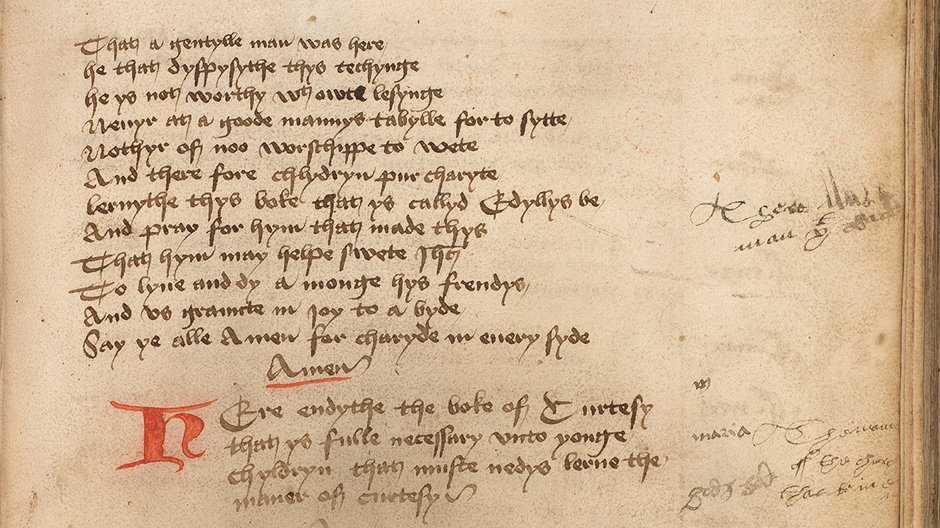 That a gentylle man was here
he that dyspysythe thys techynge
he ys not worthy wt owte lesynge
Neuyr at a goode mannys tabylle for to sytte
Nothyr of noo worschippe to wete
And there fore chyldryn pur charyte
lernythe thys boke that ys callyd Edyllys be
And pray for hym that made thys
That hym may helpe swete Ihc
To lyue and dy a monge hys frendys
And vs graunte in Joy to a byde
Say ye alle Amen for charyde in euery syde
Amen
Here endythe the boke of Curtesy
that ys fulle necessary vnto yonge
chyldryn that muste nedys lerne the
maner of curtesy
man
maria
of the
that